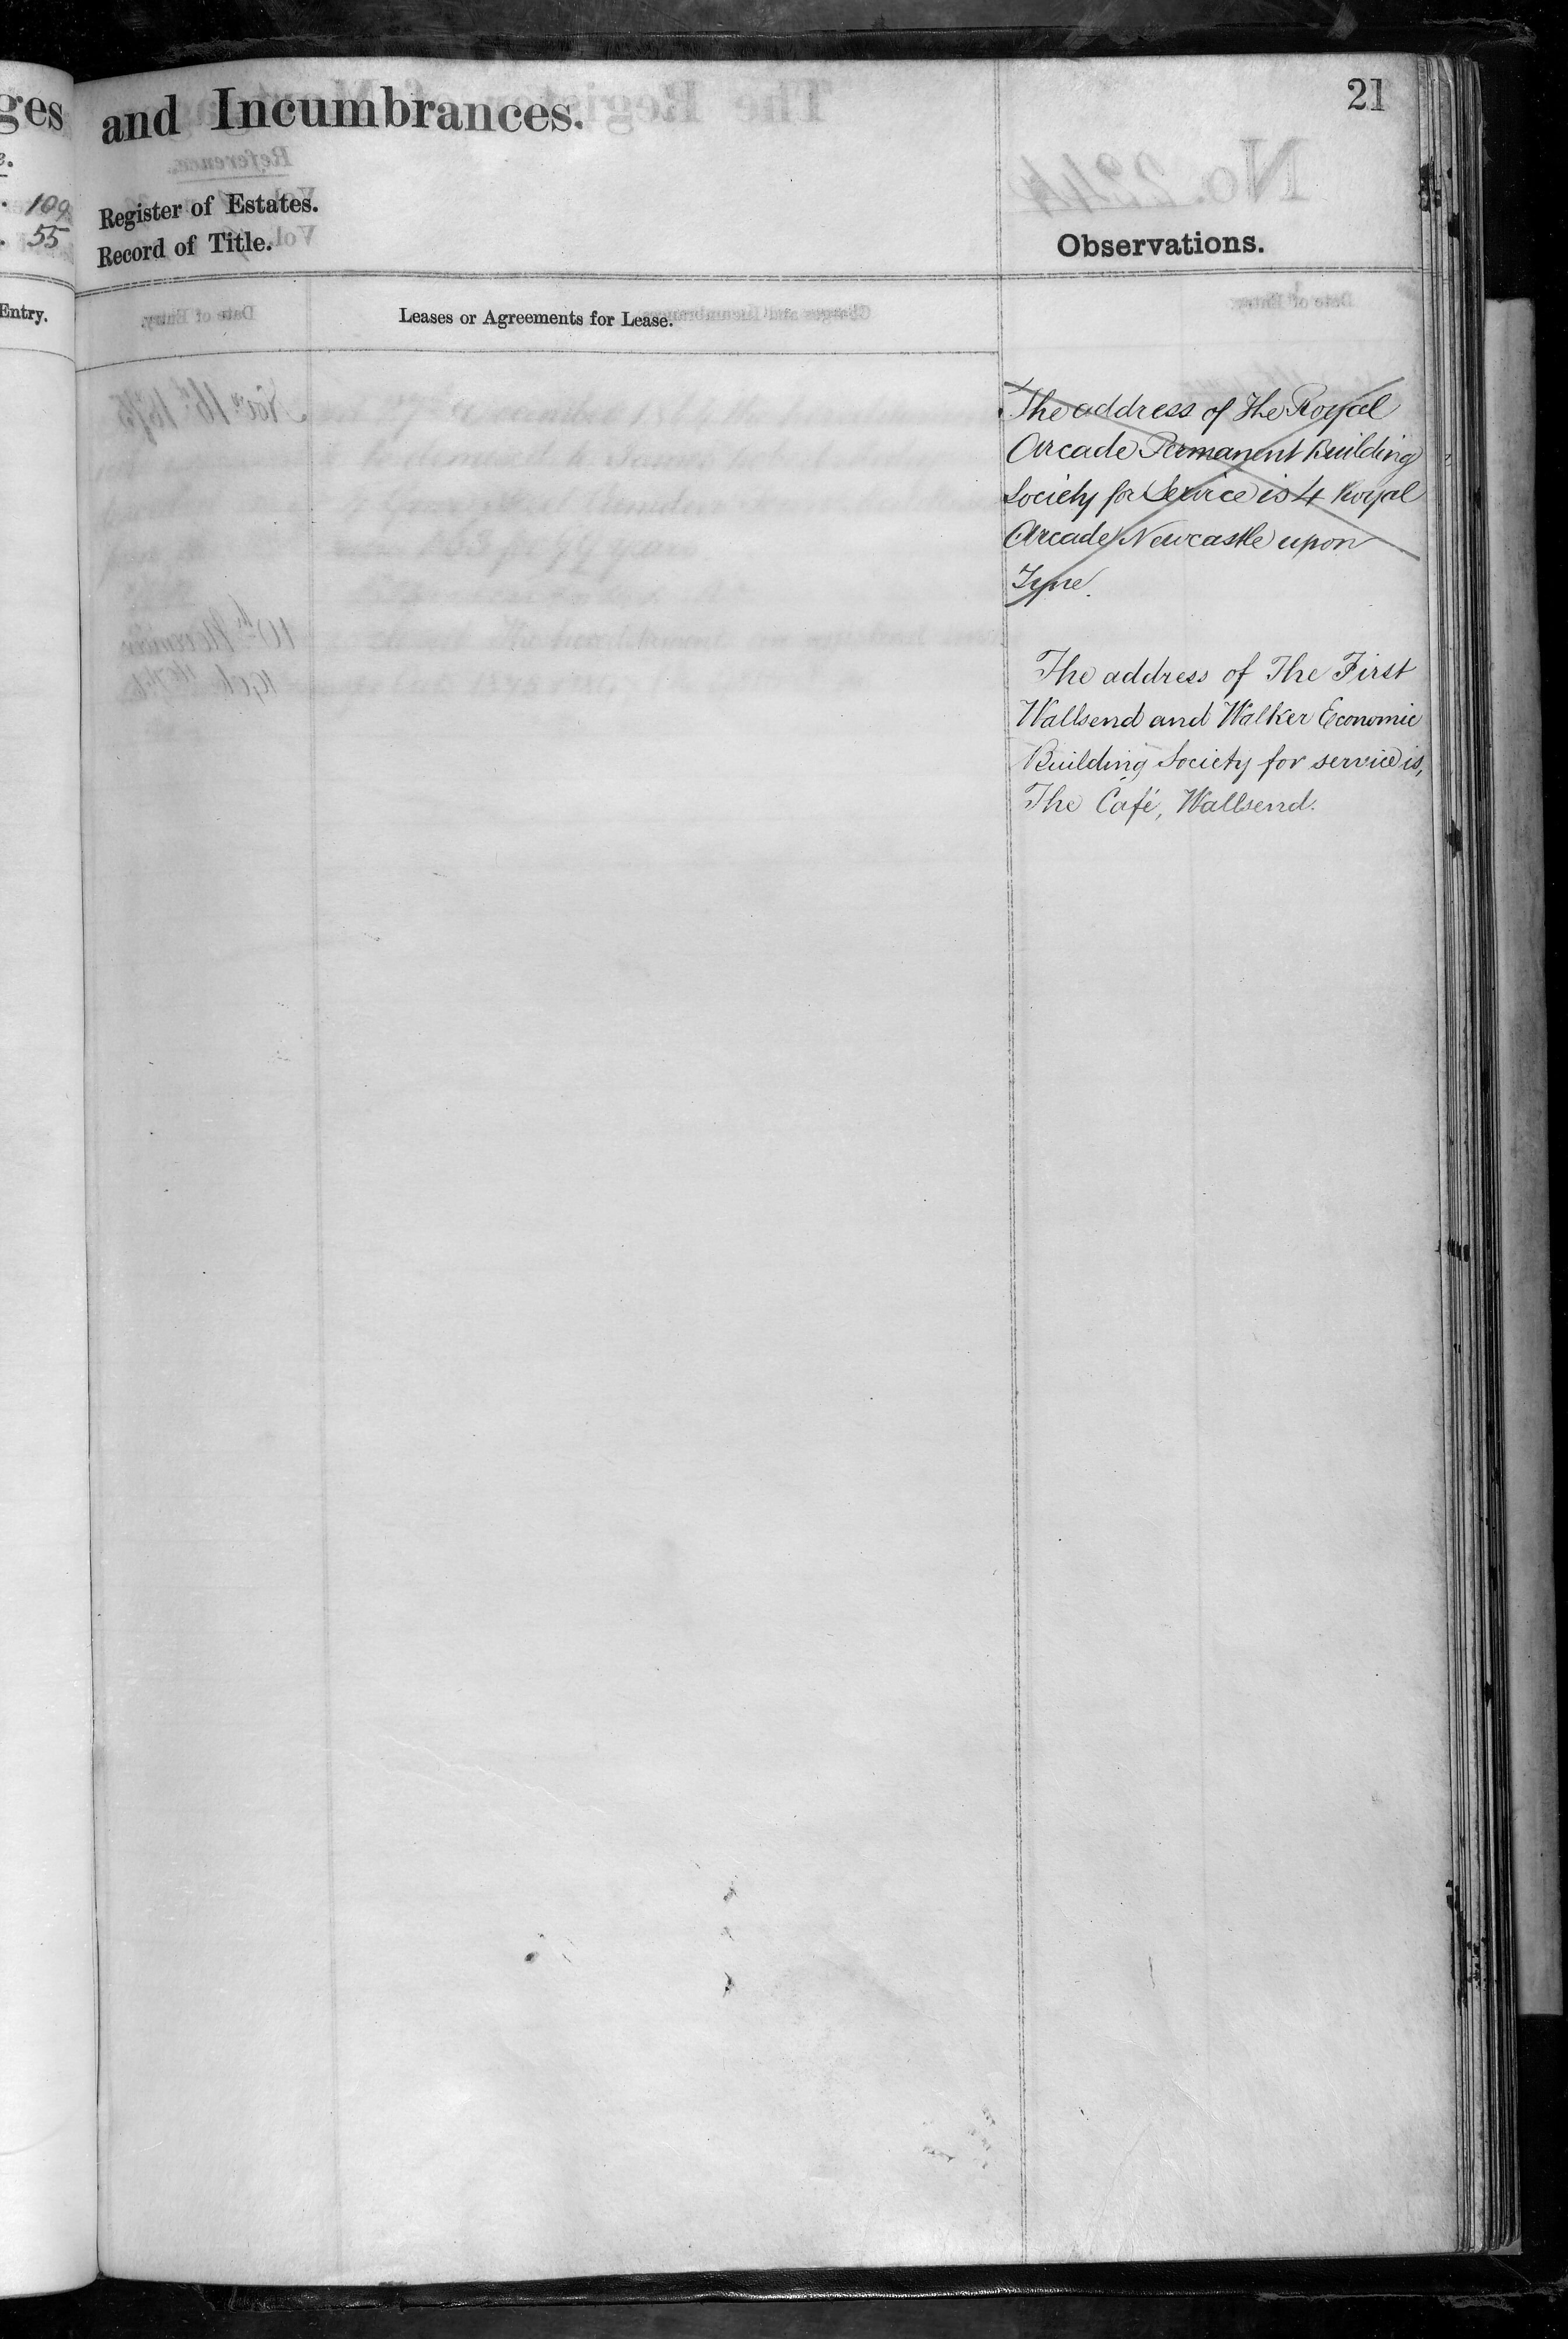 ges
and Incumbrances.
21
109
55
Register of Estates.
Record of Title.
Observations.
Entry.
Leases or Agreements for Lease.
The address of The Royal
Arcade Permanent Building
Society for Service is 4 Royal
Arcade Newcastle upon
Tyne.
The address of The First
Wallsend and Walker Economic
Building Society for service is,
The Café, Wallsend.